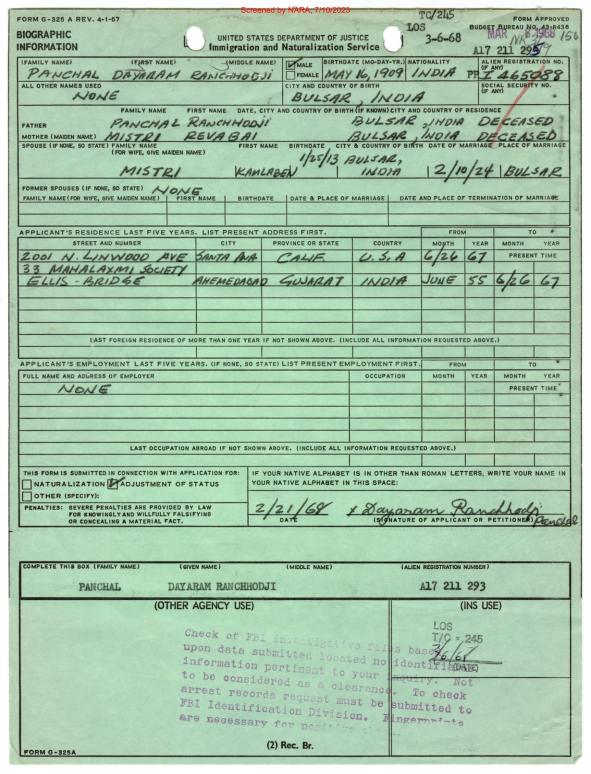 Screened by NARA, 7/10/2023
FORM G-325 A REV. 4-1-67
TC/245
FORM APPROVED
BUDGET BUREAU No. 43-R436
BIOGRAPHIC
INFORMATION
LOS
UNITED STATES DEPARTMENT OF JUSTICE
Immigration and Naturalization Service
3-6-68
MAR 8 1968
A17 211 29
(FAMILY NAME) (FIRST NAME) (MIDDLE NAME) MALE FEMALE BIRTHDATE (MO.-DAY-YR.) NATIONALITY ALIEN REGISTRATION NO. (IF ANY)
PANCHAL DAYARAM RANCHHODJI MAY 16, 1909 INDIA PP I 465088
ALL OTHER NAMES USED CITY AND COUNTRY OF BIRTH SOCIAL SECURITY NO. (IF ANY)
NONE BULSAR, INDIA
FAMILY NAME FIRST NAME DATE, CITY AND COUNTRY OF BIRTH (IF KNOWN) CITY AND COUNTRY OF RESIDENCE
FATHER PANCHAL RANCHHODJI BULSAR, INDIA DECEASED
MOTHER (MAIDEN NAME) MISTRI REVABAI BULSAR, INDIA DECEASED
SPOUSE (IF NONE, SO STATE) FAMILY NAME (FOR WIFE, GIVE MAIDEN NAME) FIRST NAME BIRTHDATE CITY & COUNTRY OF BIRTH DATE OF MARRIAGE PLACE OF MARRIAGE
MISTRI KAMLABEN 1/25/13 BULSAR, INDIA 2/10/24 BULSAR
FORMER SPOUSES (IF NONE, SO STATE) NONE
FAMILY NAME (FOR WIFE, GIVE MAIDEN NAME) FIRST NAME BIRTHDATE DATE & PLACE OF MARRIAGE DATE AND PLACE OF TERMINATION OF MARRIAGE
APPLICANT'S RESIDENCE LAST FIVE YEARS. LIST PRESENT ADDRESS FIRST. FROM TO
STREET AND NUMBER CITY PROVINCE OR STATE COUNTRY MONTH YEAR MONTH YEAR
2001 N. LINWOOD AVE SANTA ANA CALIF. U.S.A 6/26 67 PRESENT TIME
33 MAHALAXMI SOCIETY
ELLIS-BRIDGE AHEMEDABAD GUJARAT INDIA JUNE 55 6/26 67
LAST FOREIGN RESIDENCE OF MORE THAN ONE YEAR IF NOT SHOWN ABOVE. (INCLUDE ALL INFORMATION REQUESTED ABOVE.)
APPLICANT'S EMPLOYMENT LAST FIVE YEARS. (IF NONE, SO STATE) LIST PRESENT EMPLOYMENT FIRST. FROM TO
FULL NAME AND ADDRESS OF EMPLOYER OCCUPATION MONTH YEAR MONTH YEAR
NONE PRESENT TIME
LAST OCCUPATION ABROAD IF NOT SHOWN ABOVE. (INCLUDE ALL INFORMATION REQUESTED ABOVE.)
THIS FORM IS SUBMITTED IN CONNECTION WITH APPLICATION FOR:
NATURALIZATION ADJUSTMENT OF STATUS
OTHER (SPECIFY):
IF YOUR NATIVE ALPHABET IS IN OTHER THAN ROMAN LETTERS, WRITE YOUR NAME IN
YOUR NATIVE ALPHABET IN THIS SPACE:
PENALTIES: SEVERE PENALTIES ARE PROVIDED BY LAW
FOR KNOWINGLY AND WILLFULLY FALSIFYING
OR CONCEALING A MATERIAL FACT.
2/21/68 x Dayaram Ranchhodji Panchal
DATE (SIGNATURE OF APPLICANT OR PETITIONER)
COMPLETE THIS BOX (FAMILY NAME) (GIVEN NAME) (MIDDLE NAME) (ALIEN REGISTRATION NUMBER)
PANCHAL DAYARAM RANCHHODJI A17 211 293
(OTHER AGENCY USE) (INS USE)
Check of FBI investigative files based
upon data submitted located no identifiable
information pertinent to your inquiry. Not
to be considered as a clearance. To check
arrest records request must be submitted to
FBI Identification Division. Fingerprints
are necessary for positive
LOS
T/C = 245
3/6/68
(DATE)
(2) Rec. Br.
FORM G-325A